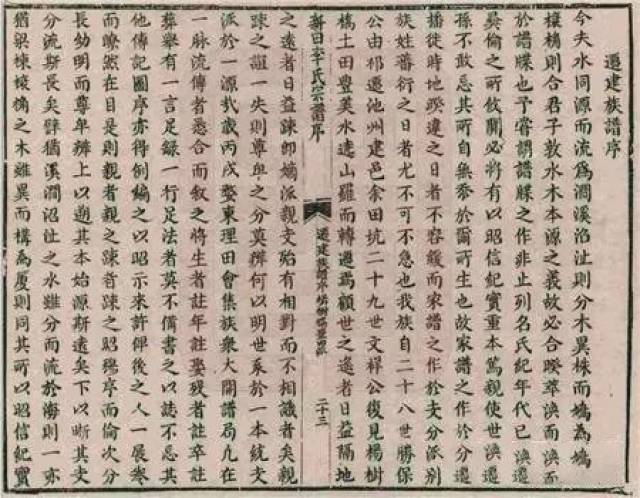 遷建族譜序
今夫水同源而流為澗溪沼沚則分木異株而鳩為鳩
櫰桷則合君子敦水木本源之義故必合暌萃渙而
於譜牒也予嘗謂譜牒之作非止列名氏紀年代已
彝倫之所攸關必將有以昭信紀實重本篤親使世
孫不敢忘其所自無忝於爾所生也故家譜之作於分
播徙時地暌違之日者不容緩而家譜之作於支分派別
族姓蕃衍之日者尤不可不急也我族自二十八世勝保
公由祁遷池州建邑余田坑二十九世文祥公復見楊樹
橋土田豐美水遶山羅而轉遷焉顧世之遙者日益隔地
之遠者日益疎即嫡派親支殆有相對而不相識者矣親
疎之誼一失則尊卑之分莫辨何以明世系於一本統支
派於一源哉歲丙戌娶東理田會集族衆大開譜局凡在
一脉流傳者悉合而叙之將生者註年註娶歿者註卒註
葬舉有一言足錄一行足法者莫不備書之以誌不忘其
他傳記圖序亦得倒編之以昭示來許俾後之人一展卷
而瞭然在目是則親者親之疎者疎之昭穆序而倫次分
長幼明而尊卑辨上以遡其本始源斯遠矣下以晰其支
分流斯長矣譬猶溪澗沼沚之水雖分而流於海則一亦
猶梁棟榱桷之木雖異而構為廈則同其所以昭信紀實
新田李氏宗譜序
二十三